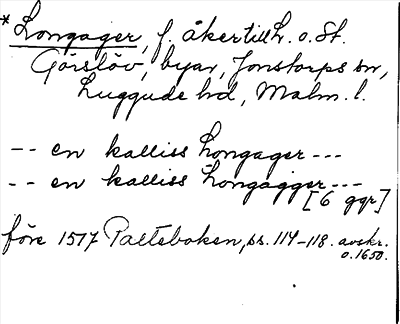 *Longager, f. åker till L. o. St.
Görslöv, byar, Jonstorps sn,
Luggude hd, Malm. l.
-- en kalliss Longager ---
-- en kalliss Longagger ---
[6 ggr]
före 1577 Palteboken, ss. 114-118. avskr.
o. 1650.